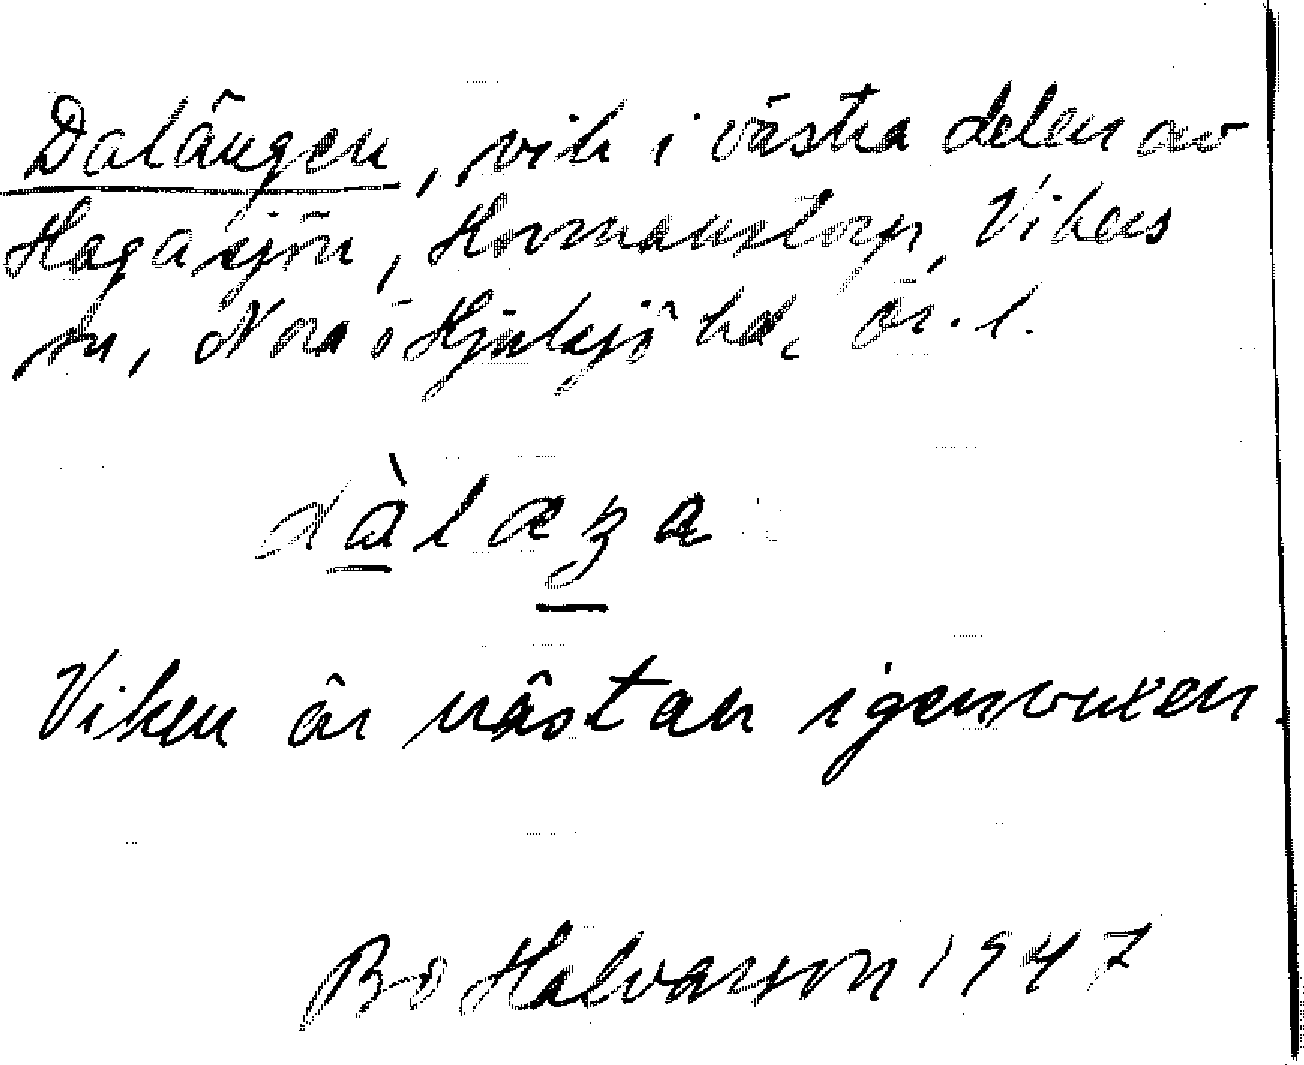 Dalängen, vik i västra delen av
Hagasjön, Hormanstorp, Vikers
sn, Nora o Hjulsjö hd, ör. l.
dàlæŋa
Viken är nästan igenvuxen.
Bo Halvarson 1947